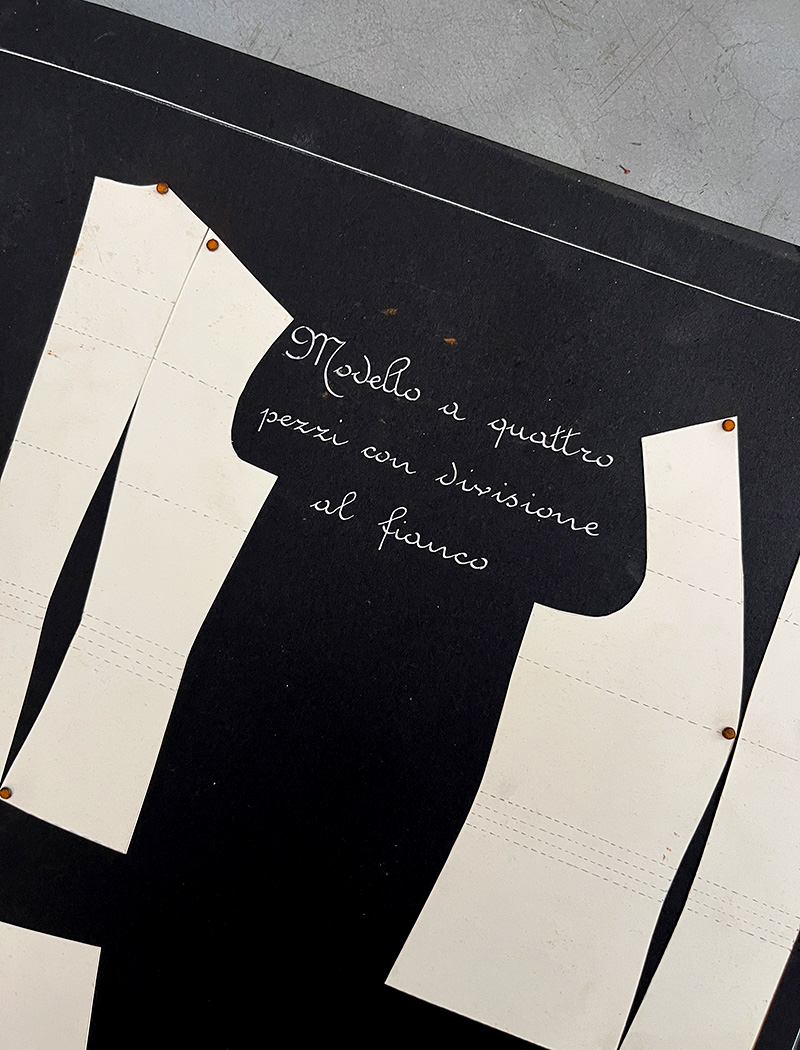 Modello a quattro
pezzi con divisione
al fianco